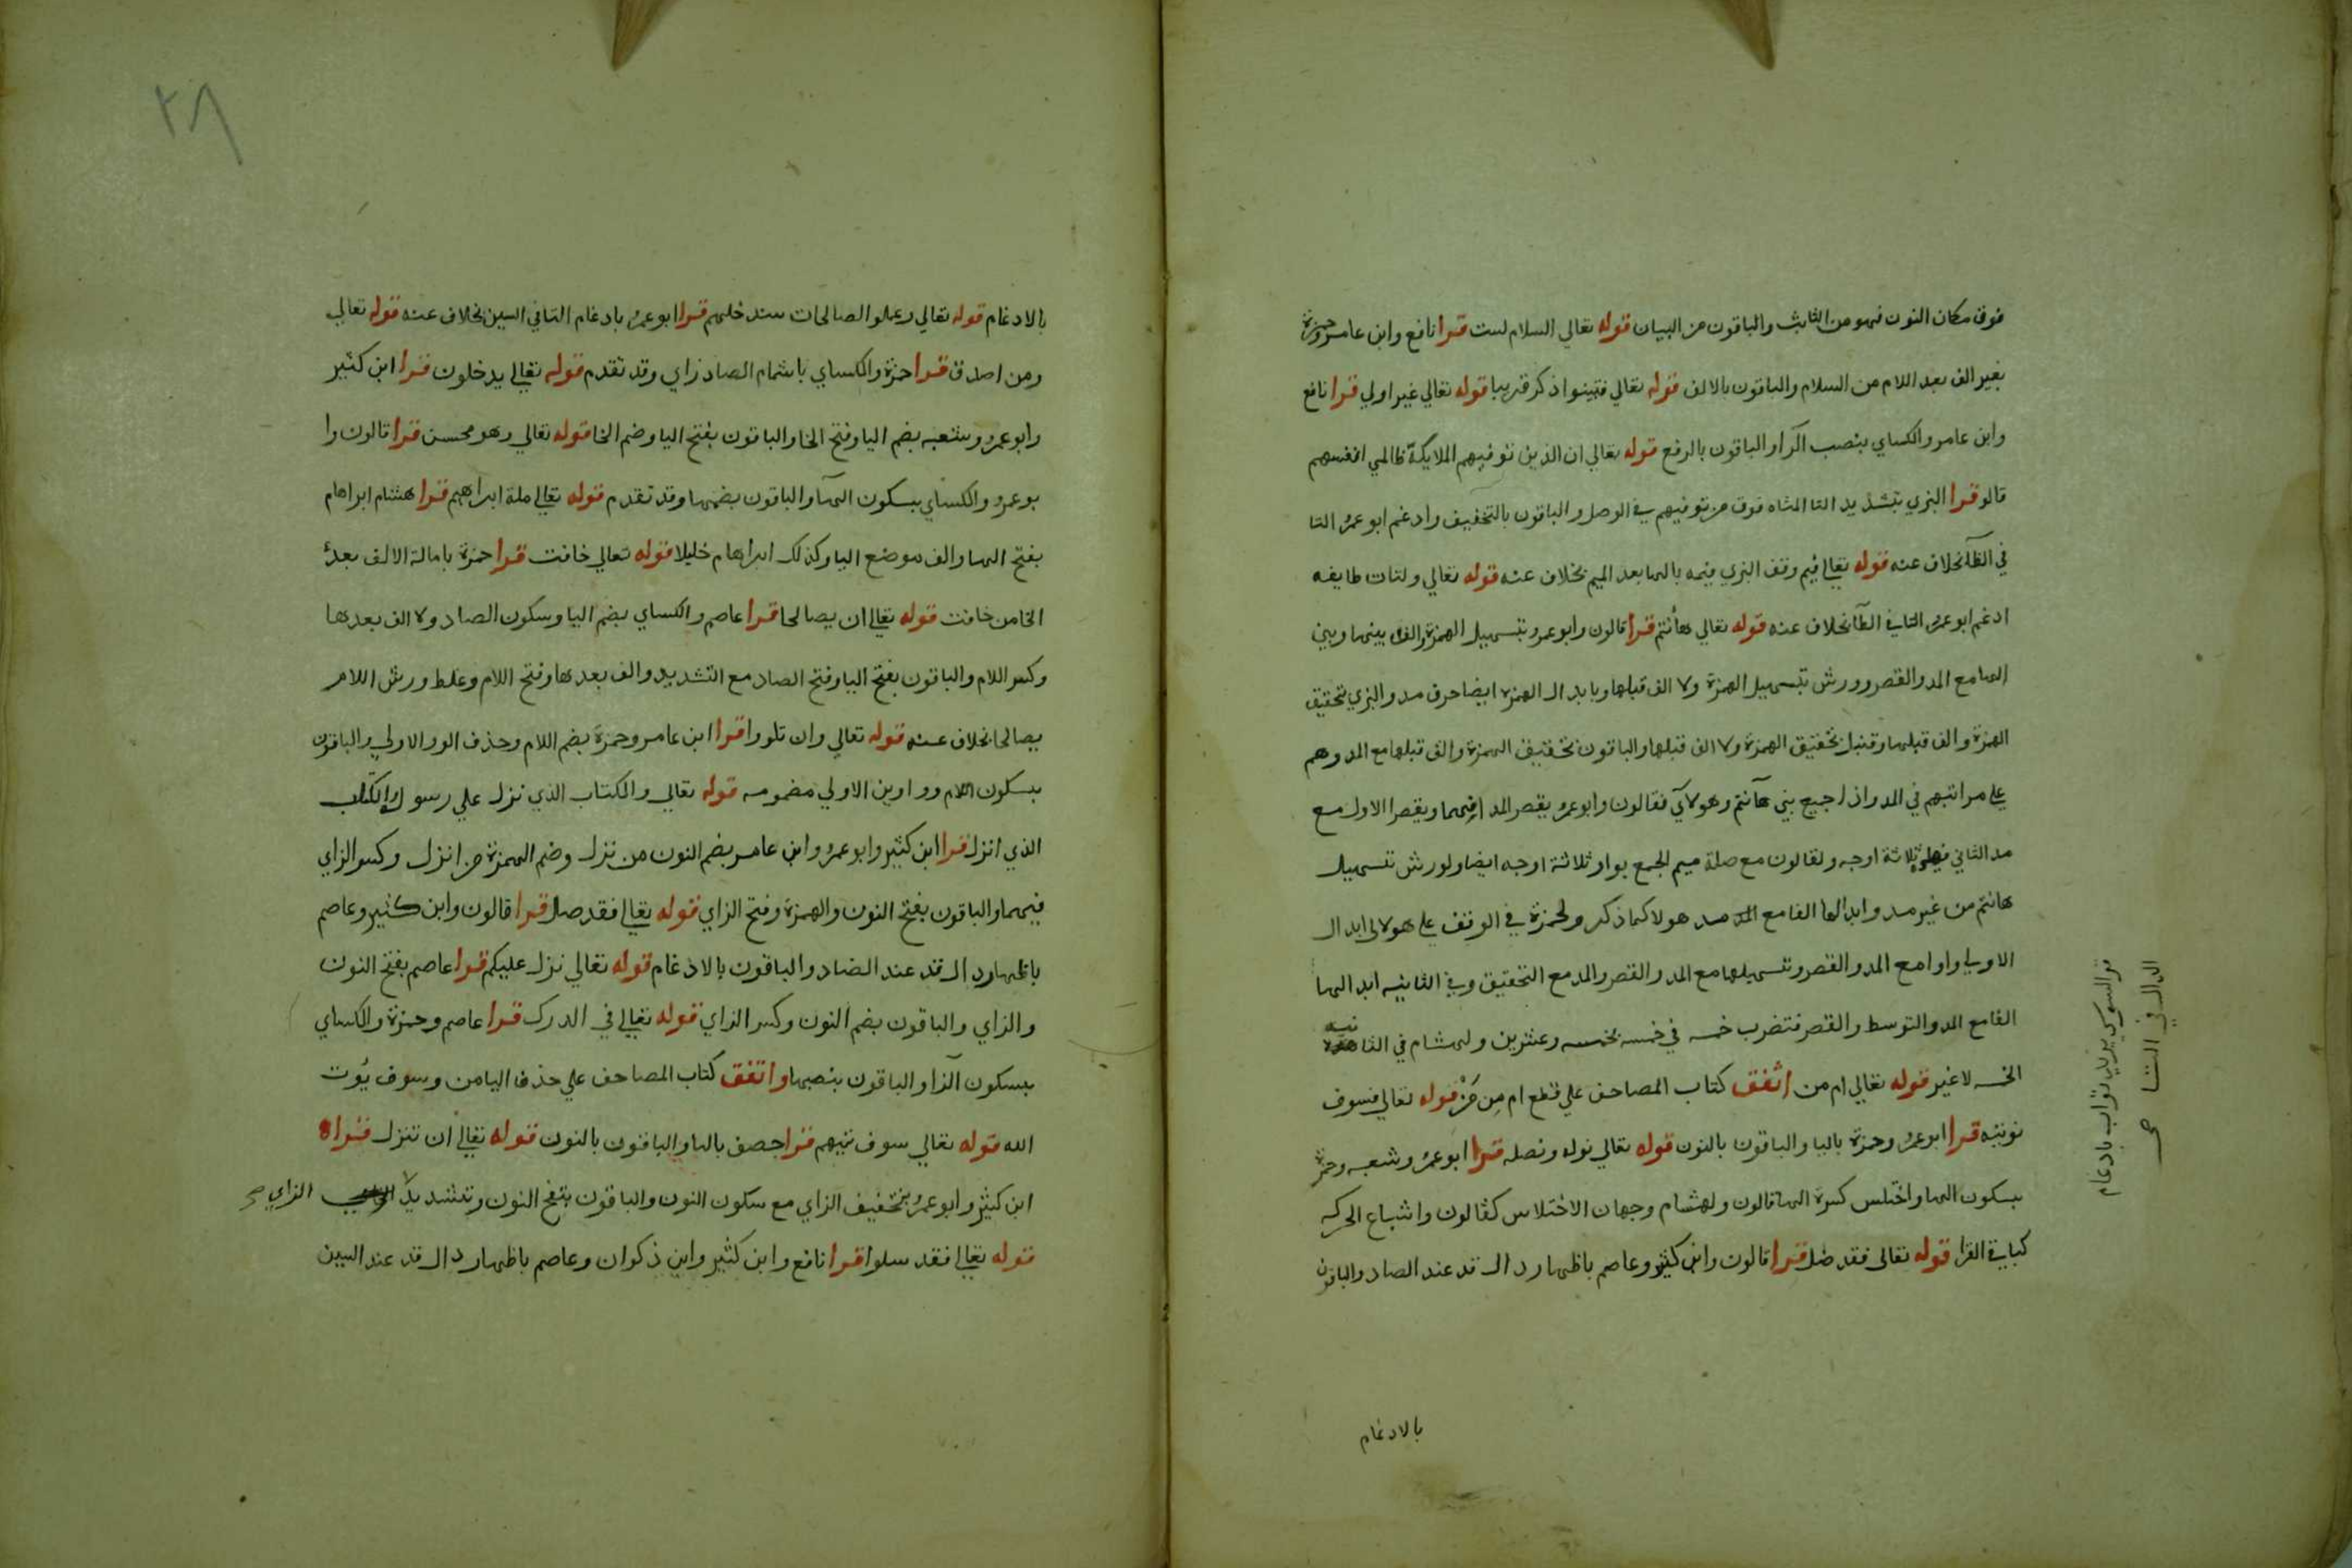 فوق مكان النون فهو من الثابث والباقون من البيان قوله تعالي السلام لست قرا نافع وابن عامر وحمزة
بغير الف بعد اللام من السلام والباقون بالالف قوله تعالي فتبينوا ذكر قريبا قوله تعالي غير اولي قرا نافع
وابن عامر والكساي بنصب الرا والباقون بالرفع قوله تعالي ان الذين توفيهم الملايكة ظالمي انفسهم
قالو قرا البزي بتشديد التا المثناه فوق من توفيهم في الوصل والباقون بالتخفيف وادغم ابو عمرو التا
في الظا بخلاف عنه قوله تعالي فيم وقف البزي فيمه بالها بعد الميم بخلاف عنه قوله تعالي ولتات طايفه
ادغم ابو عمرو التا في الطا بخلاف عنه قوله تعالي هأنتم قرا قالون وابو عمرو بتسهيل الهمزة والف بينها وبين
الها مع المد والقصر وورش بتسهيل الهمزة ولا الف قبلها وبابدال الهمزه ايضا حرف مد والبزي بتحقيق
الهمزة والف قبلها وقنبل بتحقيق الهمزة ولا الف قبلها والباقون بتحقيق الهمزة والف قبلها مع المد وهم
علي مراتبهم في المد واذا جمع بين هآنتم وهولاي فقالون وابو عمرو يقصر المد فيهما ويقصر الاول مع
مد الثاني ثلاثة اوجه ولقالون مع صلة ميم الجمع بواو ثلاثة اوجه ايضا ولورش تسهيل
هانتم من غير مد وابدالها الفا مع المد مد هولا كما ذكر ولحمزة في الوقف علي هولاي ابدال
الاولي واوا مع المد والقصر وتسهيلها مع المد والقصر والمد مع التحقيق وفي الثانيه ابدالها
الفا مع المد والتوسط والقصر فتضرب خمسه في خمسه بخمسه وعشرين ولهشام في الثانيه
الخمسه لا غير قوله تعالي ام من اتفق كتاب المصاحف علي قطع ام مِن مَنْ قوله تعالي فسوف
نوتيه قرا ابو عمرو وحمزة باليا والباقون بالنون قوله تعالي نوله ونصله قرا ابو عمرو وشعبه وحمزة
بسكون الها واختلس كسرة الها قالون ولهشام وجهان الاختلاس كقالون واشباع الحركه
كباقي القرا قوله تعالي فقد ضل قرا قالون وابن كثير وعاصم باظهار دال قد عند الضاد والباقون
بالادغام
قرا السوسي يريد ثواب بادغام
الدال في الثا صح
٢٨
بالادغام قوله تعالي وعملو الصالحات سندخلهم قرا ابو عمرو بادغام التا في السين بخلاف عنه قوله تعالي
ومن اصدق قرا حمزة والكساي باشمام الصاد زاي وقد تقدم قوله تعالي يدخلون قرا ابن كثير
وابو عمرو وشعبه بضم اليا وفتح الخا والباقون بفتح اليا وضم الخا قوله تعالي وهو محسن قرا قالون وا
بو عمرو والكساي بسكون الها والباقون بضمها وقد تقدم قوله تعالي ملة ابراهيم قرا هشام ابراهام
بفتح الها والف موضع اليا وكذلك ابراهام خليلا قوله تعالي خافت قرا حمزة بامالة الالف بعد
الخا من خافت قوله تعالي ان يصالحا قرا عاصم والكساي بضم اليا وسكون الصاد ولا الف بعدها
وكسر اللام والباقون بفتح اليا وفتح الصاد مع التشديد والف بعدها وفتح اللام وغلظ ورش اللام
يصالحا بخلاف عنه قوله تعالي وان تلورا قرا ابن عامر وحمزة بضم اللام وحذف الور الاولي والباقون
بسكون اللام وواوين الاولي مضمومه قوله تعالي والكتاب الذي نزل علي رسوله والكتاب
الذي انزل قرا ابن كثير وابو عمرو وابن عامر بضم النون من نزل وضم الهمزة من انزل وكسر الزاي
فيهما والباقون بفتح النون والهمزة وفتح الزاي قوله تعالي فقد ضل قرا قالون وابن كثير وعاصم
باظهار دال قد عند الضاد والباقون بالادغام قوله تعالي نزل عليكم قرا عاصم بفتح النون
والزاي والباقون بضم النون وكسر الزاي قوله تعالي في الدرك قرا عاصم وحمزة والكساي
بسكون الرا والباقون بنصبها واتفق كتاب المصاحف علي حذف اليا من وسوف يُوت
الله قوله تعالي سوف نتيهم قرا حصف باليا والباقون بالنون قوله تعالي ان تنزل قرا
ابن كثير وابو عمرو بتخفيف الزاي مع سكون النون والباقون بفتح النون وتشديد الزاي صح
قوله تعالي فقد سلوا قرا نافع وابن كثير وابن ذكوان وعاصم باظهار دال قد عند السين